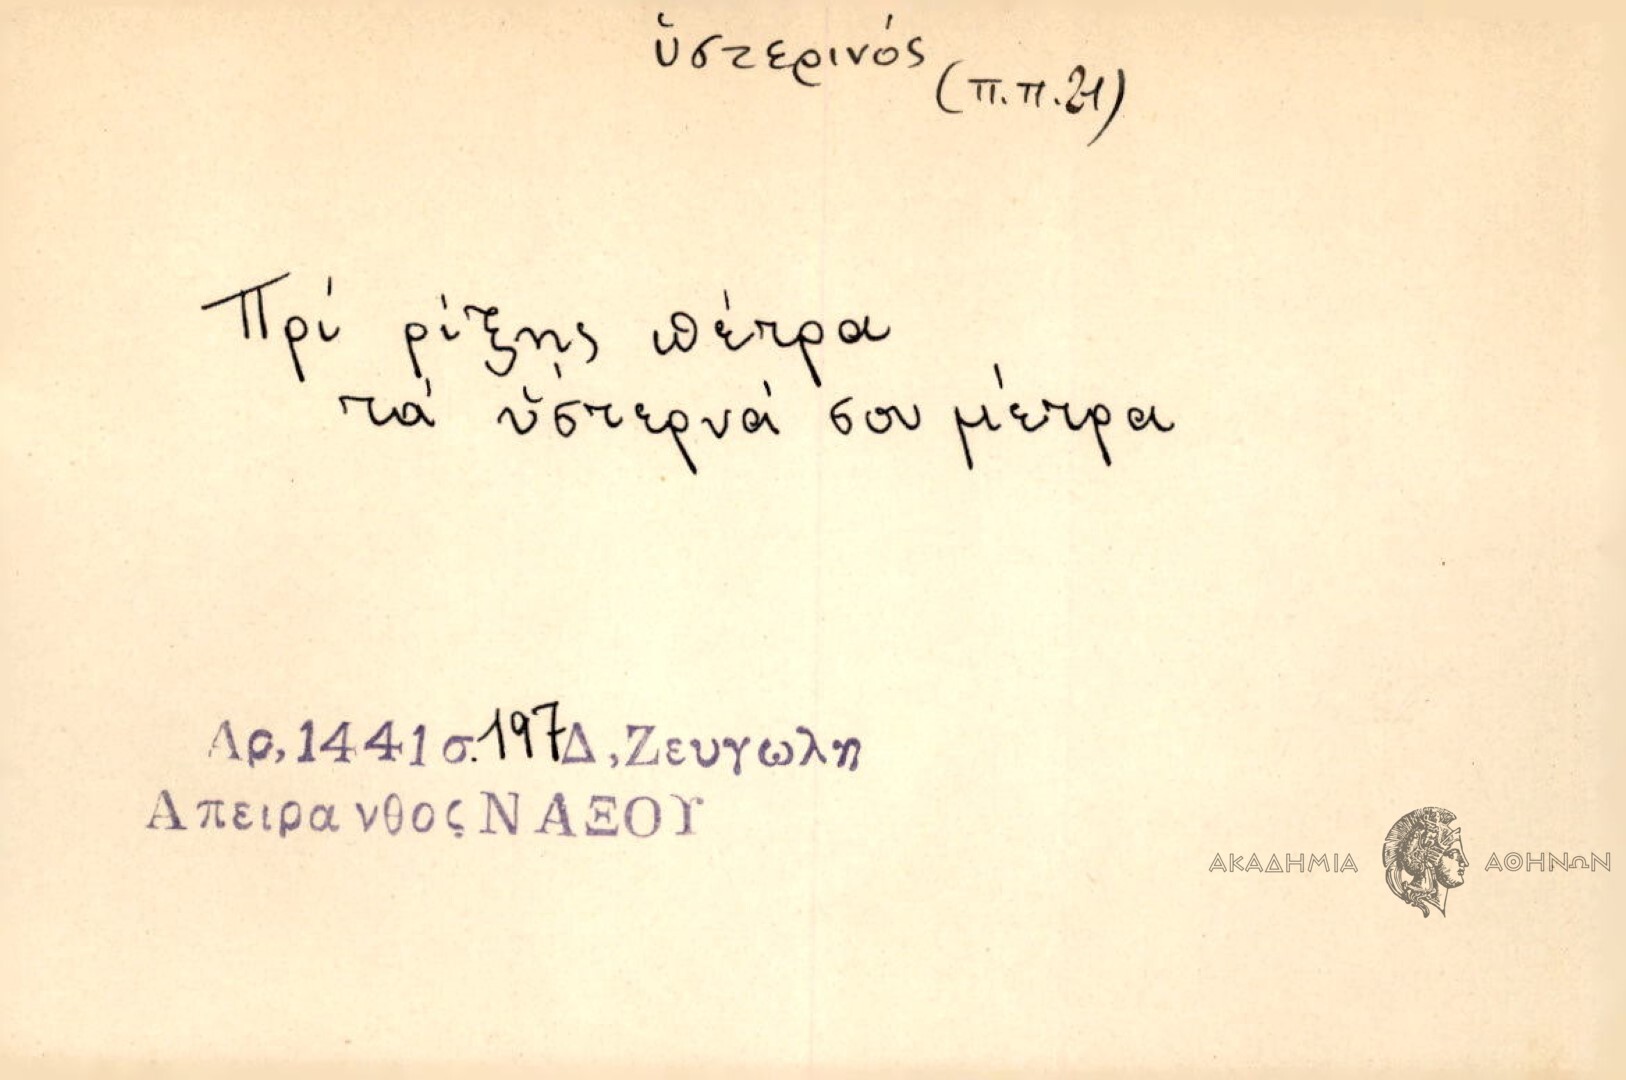 ὑστερινός
(π.π.21)
Πρί ρίξης πέτρα
τά ὕστερνά σου μέτρα
Αρ,1441 σ.197 Δ,Ζευγωλη
Απειρανθος ΝΑΞΟΥ
ΑΚΑΔΗΜΙΑ ΑΘΗΝΩΝ